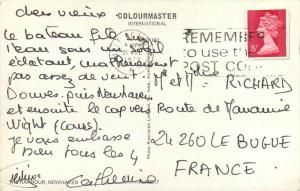 COLOURMASTER
INTERNATIONAL
chers vieux
Le bateau file sur
l'eau sous un soleil
éclatant, malheureusement
pas assez de vent.
Douvres, puis Newhaven
et ensuite le cap vers
Wight (Cowes).
Je vous embrasse
bien tous les 4
Catherine
THE HARBOUR, NEWHAVEN
REMEMBER
to use the
POST CODE
8P
M. et Mme RICHARD
Route de
24260 LE BUGUE
FRANCE.